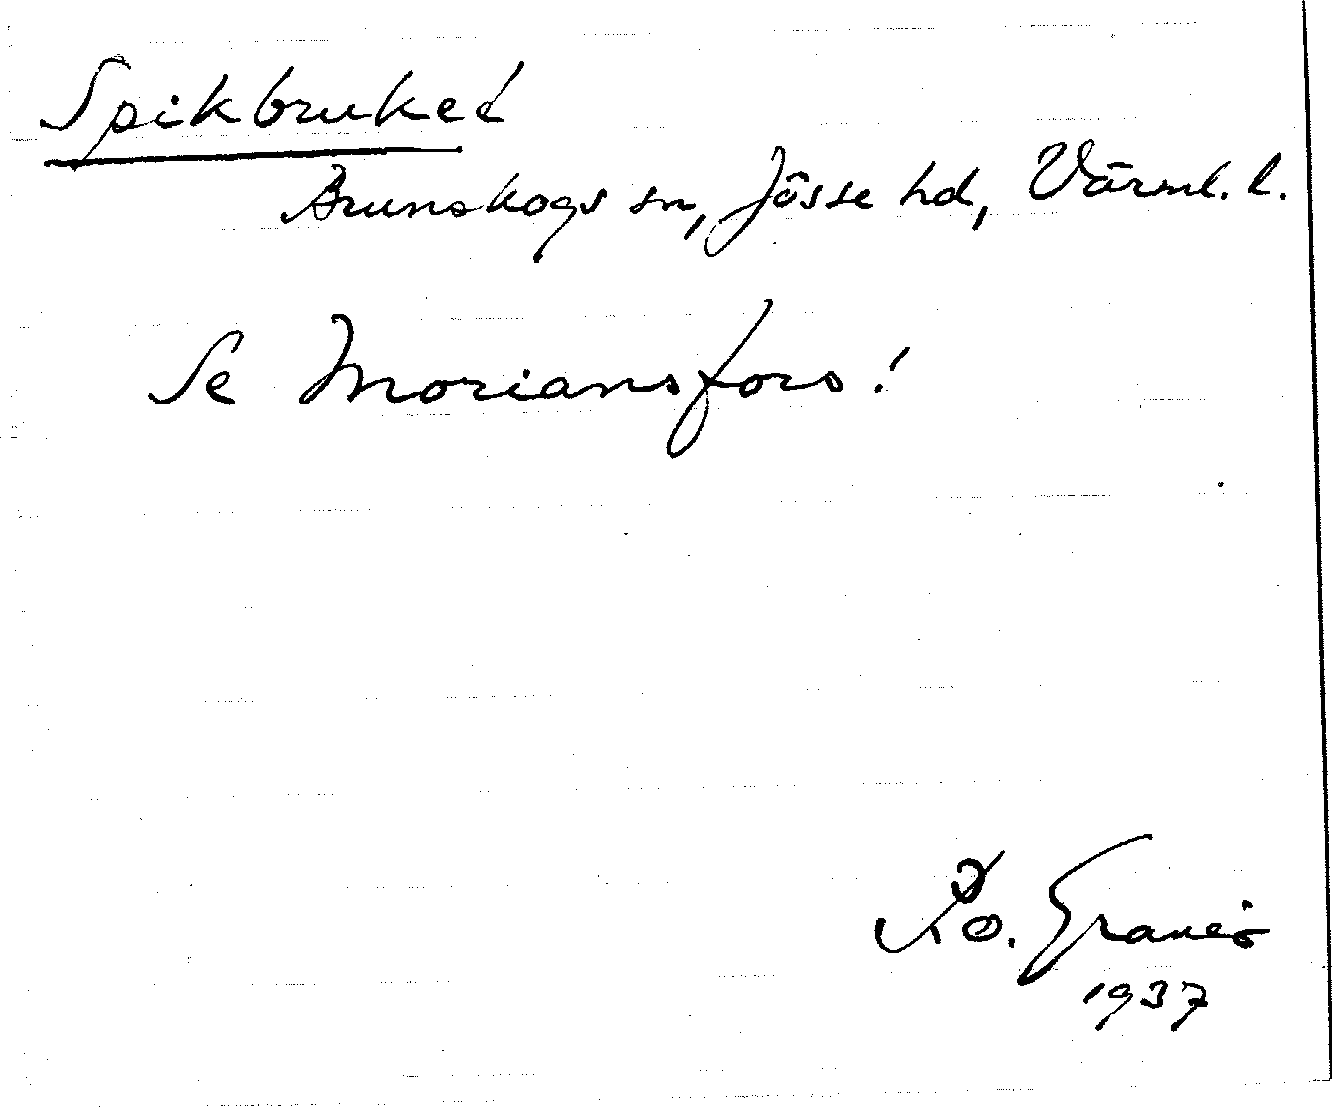 Spikbruket
Brunskogs sn, Jösse hd, Värml. l.
Se Moriansfors!
R. O. Granéö
1937